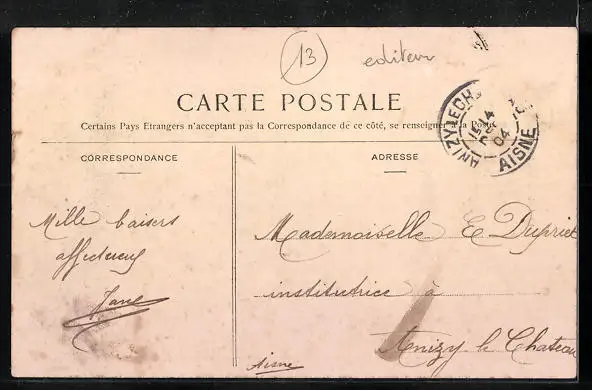 13
editeur
CARTE POSTALE
Certains Pays Etrangers n'acceptant pas la Correspondance de ce côté, se renseigner à la Poste
ANIZY-LE-CH
14
DEC
04
AISNE
CORRESPONDANCE
Mille baisers
affectueux
Jane
ADRESSE
Mademoiselle E Dupriet
institutrice à
Anizy le Chateau
Aisne